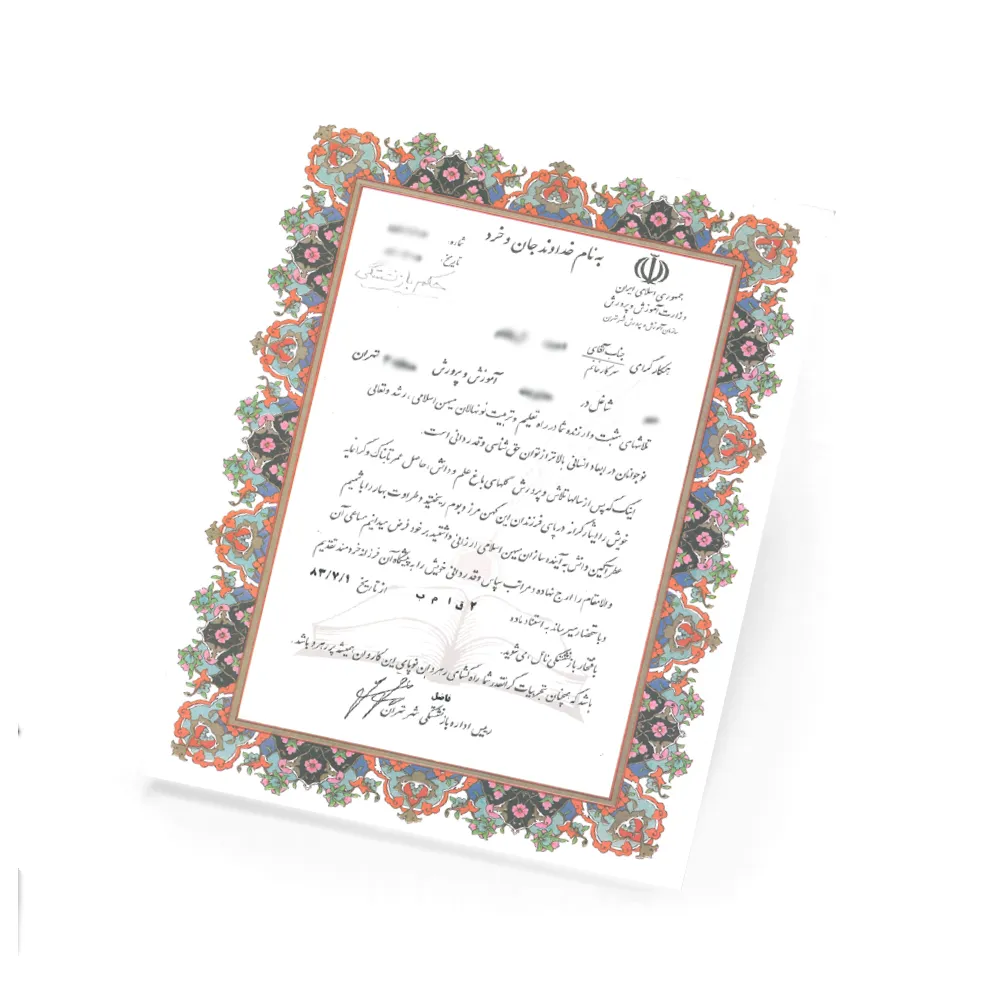 به نام خداوند جان و خرد
جمهوری اسلامی ایران
وزارت آموزش و پرورش
سازمان آموزش و پرورش شهر تهران
شماره:
تاریخ:
حکم بازنشستگی
همکار گرامی جناب آقای
سرکار خانم
شاغل در آموزش و پرورش تهران
تلاشهای مثبت و ارزنده شما در راه تعلیم و تربیت نونهالان میهن اسلامی، رشد و تعالی
نوجوانان در ابعاد انسانی بالاتر از توان حق شناسی و قدردانی است.
اینک که پس از سالها تلاش و پرورش گلهای باغ علم و دانش، حاصل عمر تابناک و گرانمایه
خویش را ایثارگرانه در پای فرزندان این کهن مرز و بوم ریختید و طراوت بهار را با شمیم
عطرآگین دانش به آینده سازان میهن اسلامی ارزانی داشتید بر خود فرض میدانیم مساعی آن
والامقام را ارج نهاده و مراتب سپاس و قدردانی خویش را به پیشگاه آن فرزانه خردمند تقدیم
و با استحضار میرساند به استناد ماده ۲ ق ا م ب از تاریخ ۸۳/۷/۱
با افتخار بازنشستگی نائل می شوید.
باشد که همچنان تجربیات گرانقدر شما راه گشای رهروان نوپای این کاروان همیشه پر رهرو باشد.
فاضل
رییس اداره بازنشستگی شهر تهران